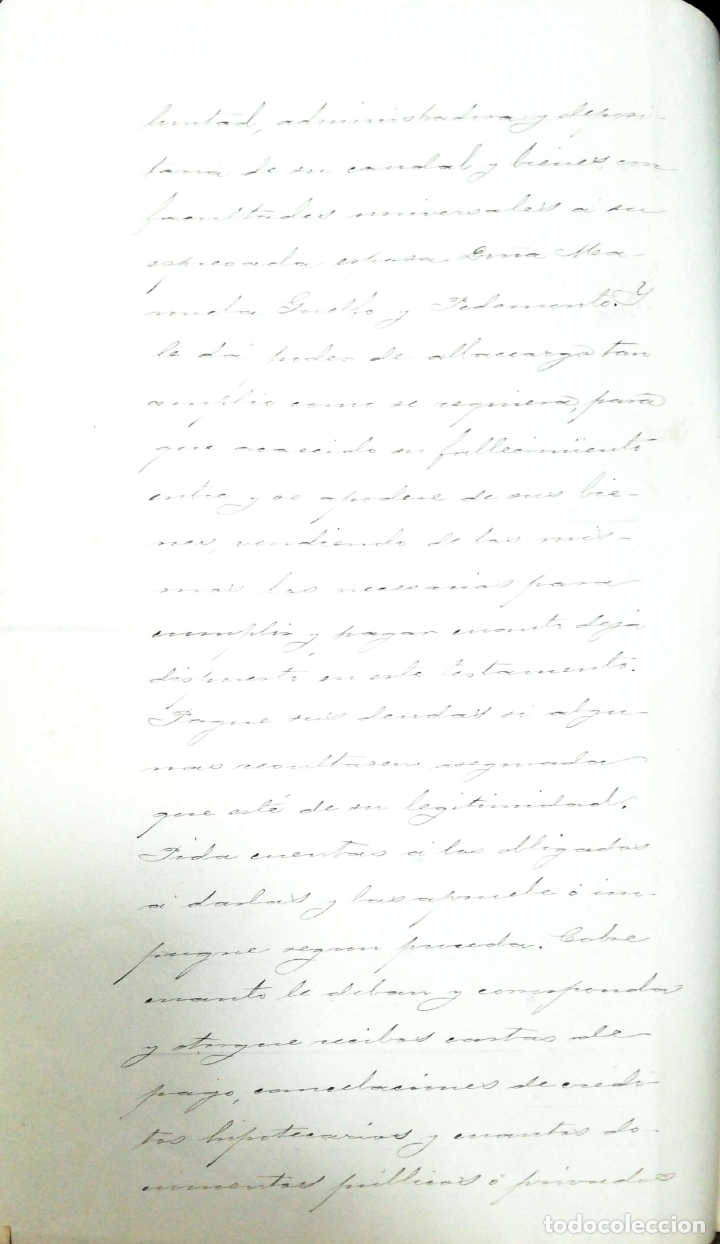 luntad, administradora y deposi-
taria de su caudal y bienes, con
facultades universales á su
espresada esposa Doña Ma-
nuela Guelfo y Pedemonte. Y
le dá poder de albaceazgo tan
amplio como se requiera, para
que acaecido su fallecimiento
entre y se apodere de sus bie-
nes, vendiendo de los mis-
mos los necesarios para
cumplir y pagar cuanto deja
dispuesto en este testamento.
Pague sus deudas si algu-
nas resultasen asegurada
que esté de su legitimidad.
Pida cuentas á los obligados
á darlas y las apruebe ó im-
pugne segun proceda. Cobre
cuanto le deban y corresponda
y otorgue recibos cartas de
pago, cancelaciones de crédi-
tos hipotecarios y cuantos do-
cumentos públicos ó privados
todocoleccion